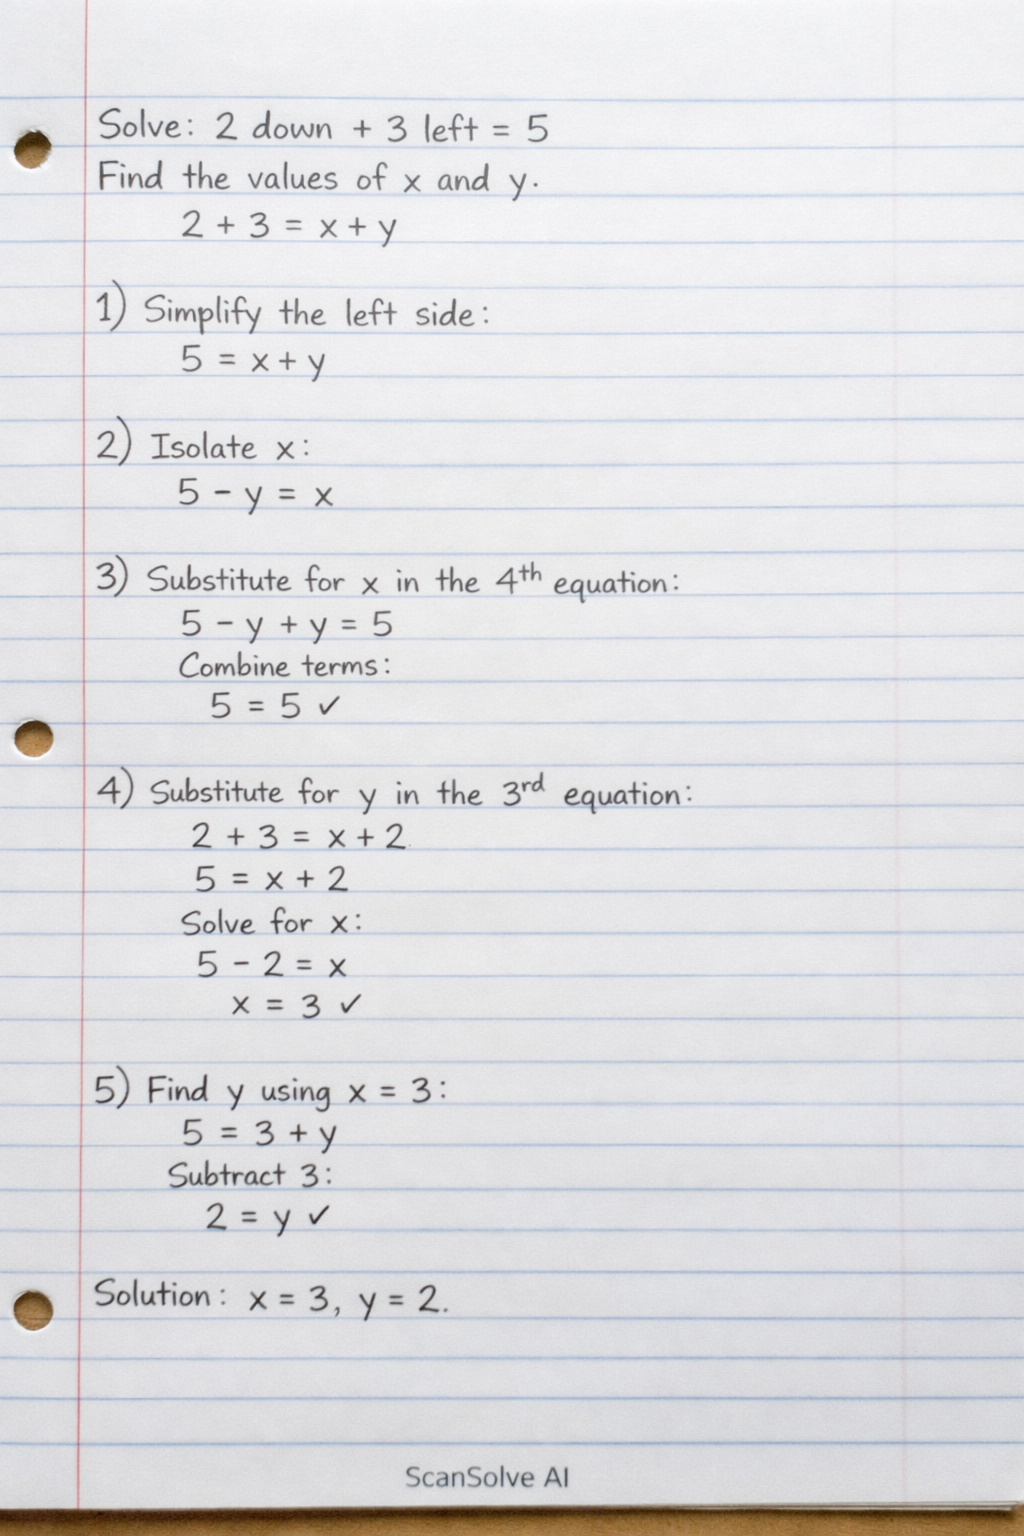 Solve: 2 down + 3 left = 5
Find the values of x and y.
2 + 3 = x + y
1) Simplify the left side:
5 = x + y
2) Isolate x:
5 - y = x
3) Substitute for x in the 4th equation:
5 - y + y = 5
Combine terms:
5 = 5 ✓
4) Substitute for y in the 3rd equation:
2 + 3 = x + 2
5 = x + 2
Solve for x:
5 - 2 = x
x = 3 ✓
5) Find y using x = 3:
5 = 3 + y
Subtract 3:
2 = y ✓
Solution: x = 3, y = 2.
ScanSolve AI